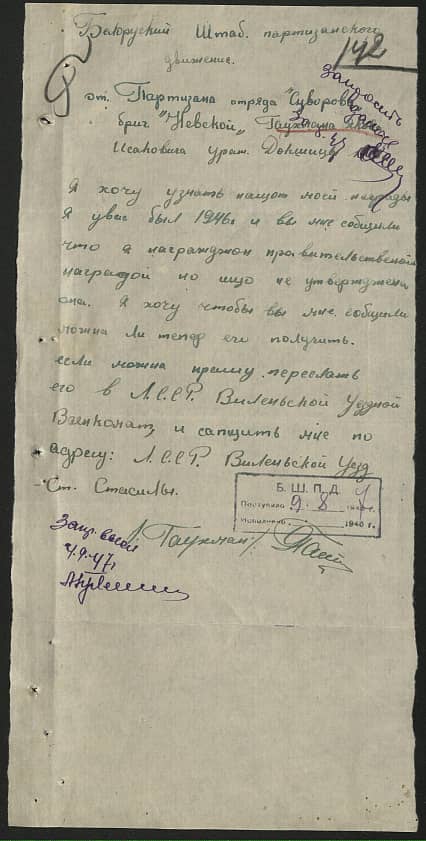 Белоруский Штаб. партизанского
142
движение.
запросить
от. Партизана отряда "Суворова
бриг "Невской" Таухмана
Исаковича урож. Докшицы
Я хочу узнать нащот моей награды
Я увас был 1946г и вы мне собщили
что я награжджон правительственой
наградой но ищо не утверджена
она. Я хочу чтобы вы мне собщили
можна ли тепер его получить.
если можна прашу переслать
его в Л.С.С.Р. Виленьской Уездной
Ваенкомат, и сапщить мне по
адресу: Л.С.С.Р. Виленьской Уезд
Ст. Стасилы.
Б. Ш. П. Д.
Поступило 9. 8 194 г.
Исполнено 1940 г.
/Таухман/
4.9.47г